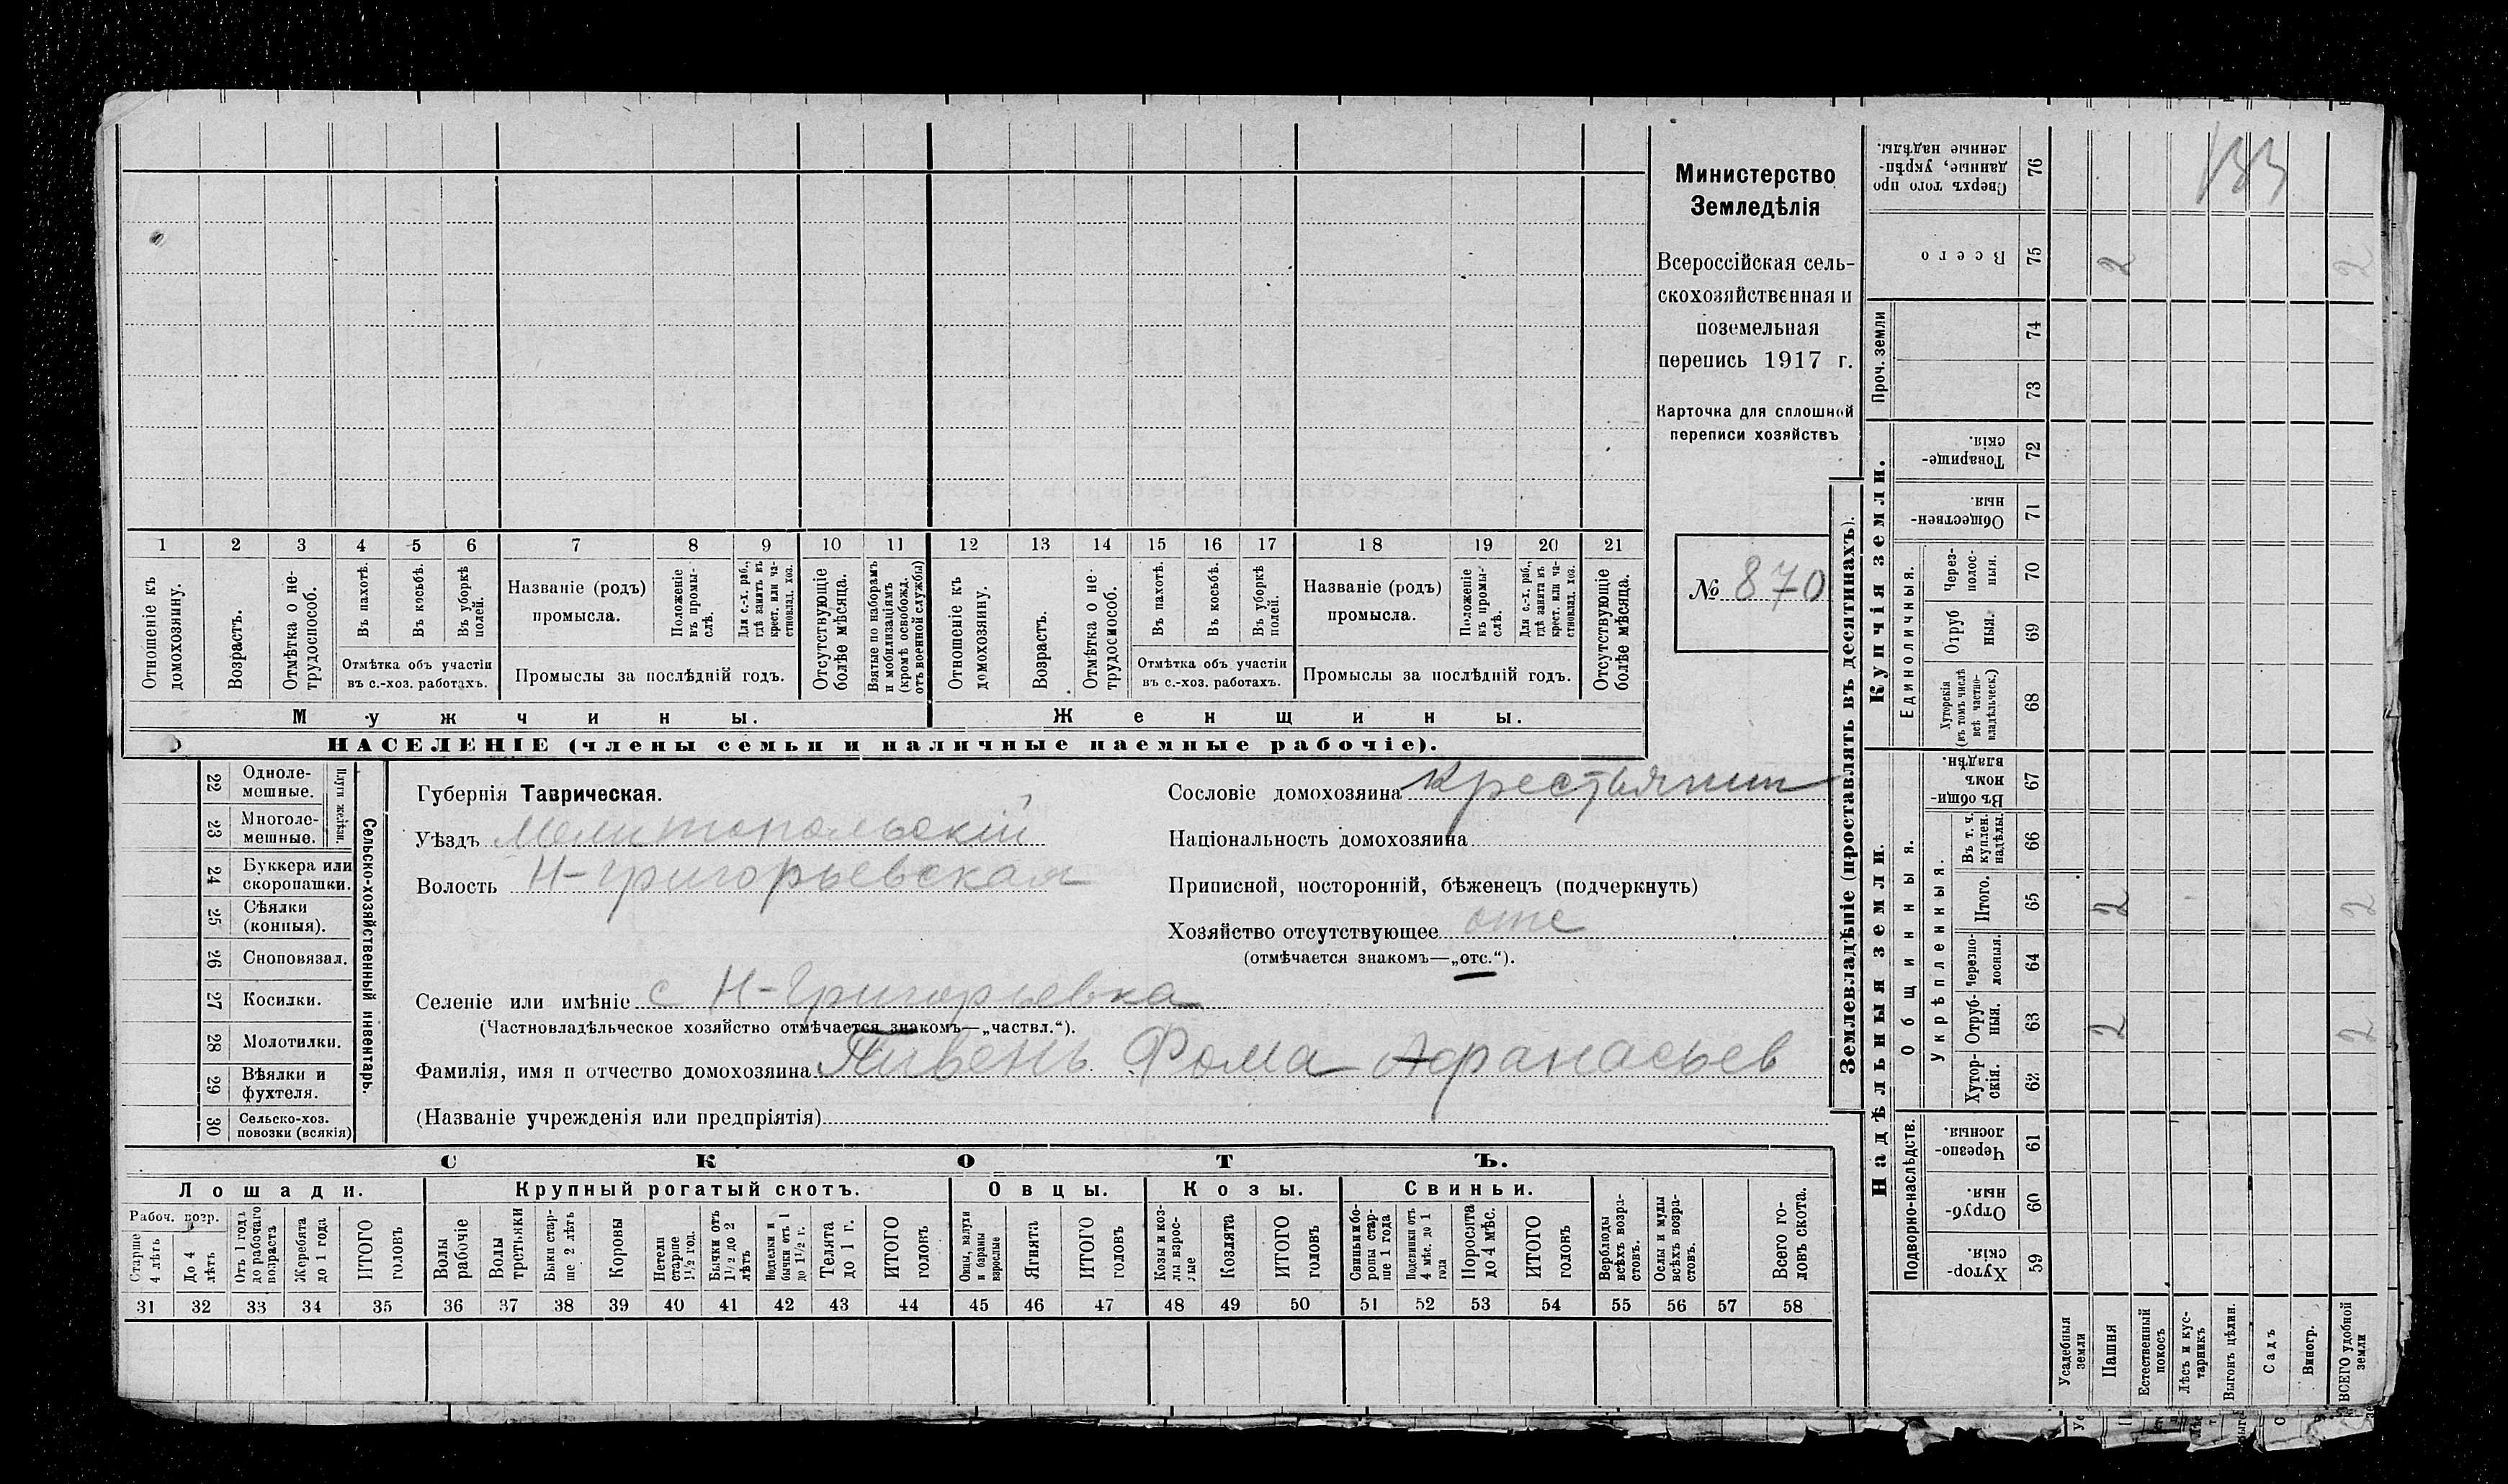 Министерство
Земледѣлія
Всероссійская сель-
скохозяйственная и
поземельная
перепись 1917 г.
Карточка для сплошной
переписи хозяйствъ
№ 870
1 2 3 4 5 6 7 8 9 10 11 12 13 14 15 16 17 18 19 20 21
Отношеніе къ домохозяину.
Возрастъ.
Отмѣтка о не-трудоспособ.
Въ пахотѣ.
Въ косьбѣ.
Въ уборкѣ полей.
Отмѣтка объ участіи
въ с.-хоз. работахъ.
Названіе (родъ)
промысла.
Положеніе въ промы-слѣ.
Для с.-х. раб., гдѣ занятъ въ крест. или ча-стновлад. хоз.
Промыслы за послѣдній годъ.
Отсутствующіе болѣе мѣсяца.
Взятые по наборамъ и мобилизаціямъ (кромѣ освобожд. отъ военной службы)
Отношеніе къ домохозяину.
Возрастъ.
Отмѣтка о не-трудоспособ.
Въ пахотѣ.
Въ косьбѣ.
Въ уборкѣ полей.
Отмѣтка объ участіи
въ с.-хоз. работахъ.
Названіе (родъ)
промысла.
Положеніе въ промы-слѣ.
Для с.-х. раб., гдѣ занята въ крест. или ча-стновлад. хоз.
Промыслы за послѣдній годъ.
Отсутствующіе болѣе мѣсяца.
Мужчины.
Женщины.
НАСЕЛЕНІЕ (члены семьи и наличные наемные рабочіе).
22 Одноле-мешные.
23 Многоле-мешные.
Плуги желѣзн.
24 Буккера или скоропашки.
25 Сѣялки (конныя).
26 Сноповязал.
27 Косилки.
28 Молотилки.
29 Вѣялки и фухтеля.
30 Сельско-хоз. повозки (всякія)
Сельско-хозяйственный инвентарь.
Губернія Таврическая.
Уѣздъ Мелитопольскій
Волость Н-Григорьевская
Сословіе домохозяина крестьянин
Національность домохозяина
Приписной, посторонній, бѣженецъ (подчеркнуть)
Хозяйство отсутствующее отс
(отмѣчается знакомъ—„отс.“).
Селеніе или имѣніе с Н-Григорьевка
(Частновладѣльческое хозяйство отмѣчается знакомъ—„частвл.“).
Фамилія, имя и отчество домохозяина Пивень Фома Афанасьев
(Названіе учрежденія или предпріятія)
СКОТЪ.
Лошади.
Крупный рогатый скотъ.
Овцы.
Козы.
Свиньи.
Рабоч. возр.
Старше 4 лѣтъ
До 4 лѣтъ
Отъ 1 годъ до рабочаго возраста
Жеребята до 1 года
ИТОГО головъ
Волы рабочіе
Волы третьяки
Быки стар-ше 2 лѣтъ
Коровы
Нетели старше 1 1/2 год.
Бычки отъ 1 1/2 до 2 лѣтъ
Телята до 1 г.
ИТОГО головъ
Овцы, валухи и бараны взрослые
Ягнята
ИТОГО головъ
Козы и коз-лы взрос-лые
Козлята
ИТОГО головъ
Свиньи и бо-ровы стар-ше 1 года
Подсвинки отъ 4 мѣс. до 1 года
Поросята до 4 мѣс.
ИТОГО головъ
Верблюды всѣхъ возра-стовъ.
Ослы и мулы всѣхъ возра-стовъ.
Всего го-ловъ скота.
31 32 33 34 35 36 37 38 39 40 41 42 43 44 45 46 47 48 49 50 51 52 53 54 55 56 57 58
Землевладѣніе (проставлять въ десятинахъ).
Надѣльныя земли.
Купчія земли.
Проч. земли
Сверхъ того про данные, укрѣп-ленные надѣлы. 76
133
Всего 75
2 2
74
73
Товарище-скія. 72
Обществен-ныя. 71
Единоличныя.
Через-полос-ныя. 70
Отруб ныя. 69
Хуторскія (въ томъ числѣ всѣ частно-владѣльческ.) 68
Общинныя.
Въ общи-номъ владѣн. 67
Укрѣпленныя.
Въ т. ч. куплен. надѣлы. 66
Итого. 65
2 2
Черезпо-лосныя. 64
Отруб-ныя. 63
2 2
Хутор-скія. 62
Подворно-наслѣдств.
Черезпо-лосныя. 61
Отруб-ныя. 60
Хутор-скія. 59
Усадебныя земли
Пашня
Естественный покосъ
Лѣсъ и кус-тарникъ
Выгонъ цѣлин.
Садъ
Виногр.
ВСЕГО удобной земли